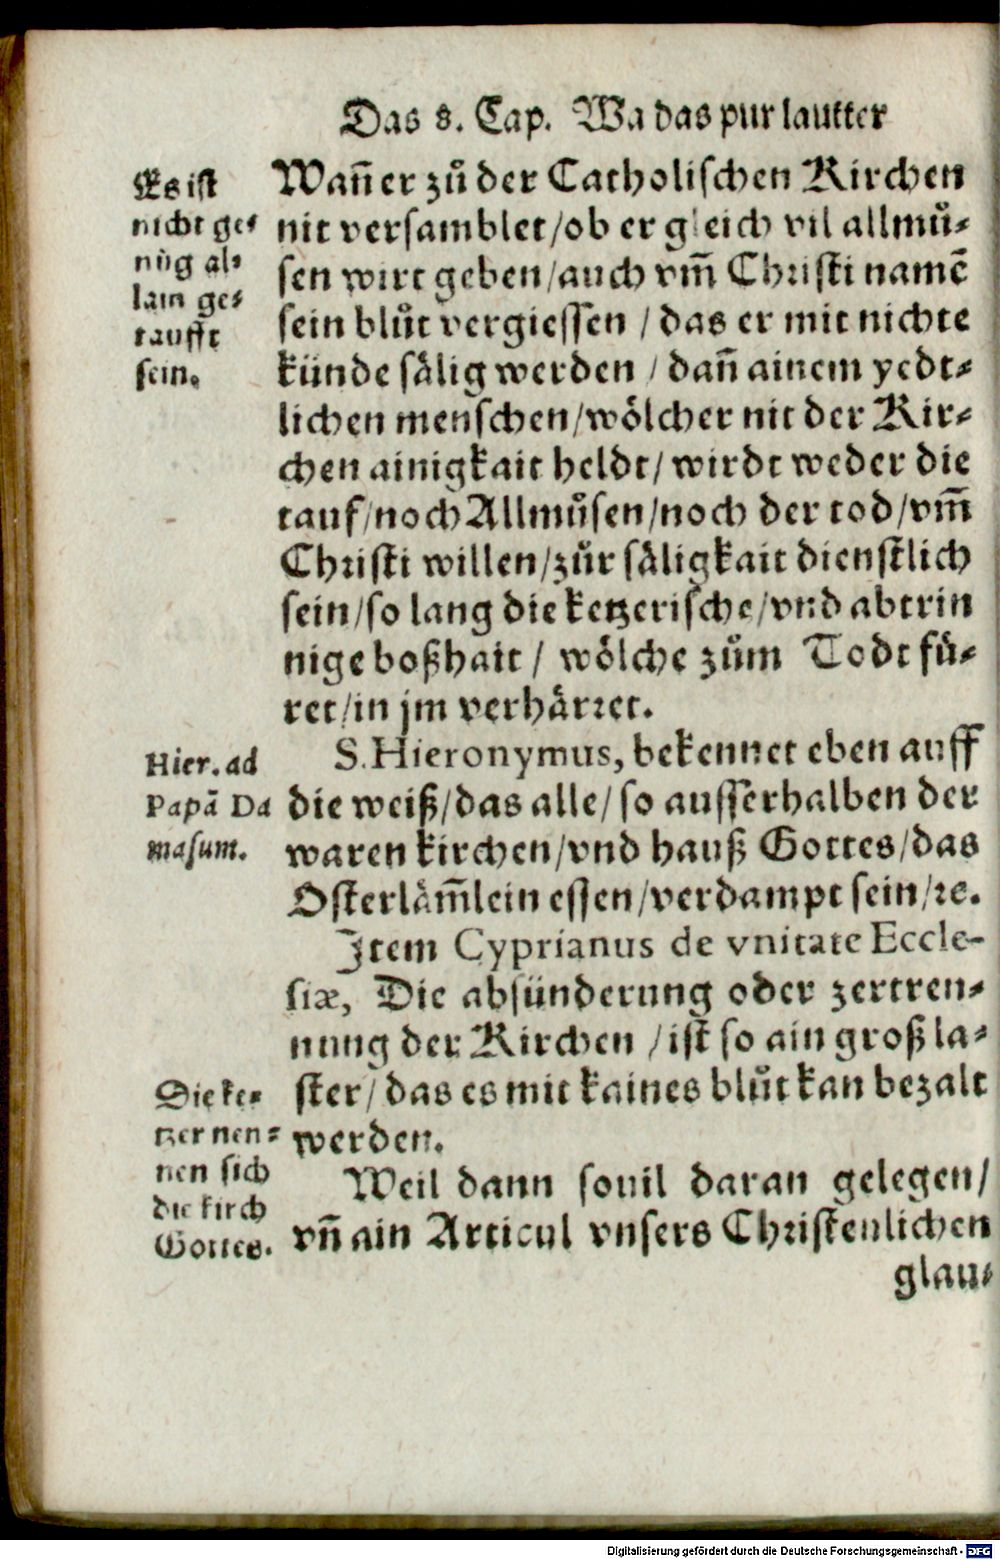 Das 8. Cap. Wa das pur lautter
Es ist
nicht ge-
nůg al-
lain ge-
taufft
sein.
Wañ er zů der Catholischen Kirchen
nit versamblet/ob er gleich vil allmů-
sen wirt geben/auch vm̃ Christi namẽ
sein blůt vergiessen / das er mit nichte
künde sälig werden / dañ ainem yedt-
lichen menschen/wölcher nit der Kir-
chen ainigkait heldt/ wirdt weder die
tauf/noch Allmůsen/noch der tod/vm̃
Christi willen/zůr säligkait dienstlich
sein/so lang die ketzerische/vnd abtrin
nige boßhait / wölche zům Todt fü-
ret/in jm verhärret.
Hier. ad
Papã Da
masum.
S. Hieronymus, bekennet eben auff
die weiß/das alle/ so ausserhalben der
waren kirchen/vnd hauß Gottes/das
Osterläm̃lein essen/verdampt sein/ꝛc.
Item Cyprianus de vnitate Eccle-
siæ, Die absünderung oder zertren-
nung der Kirchen /ist so ain groß la-
ster/ das es mit kaines blůt kan bezalt
werden.
Die ke-
tzer nen-
nen sich
die kirch
Gottes.
Weil dann souil daran gelegen/
vñ ain Articul vnsers Christenlichen
glau-
Digitalisierung gefördert durch die Deutsche Forschungsgemeinschaft - DFG